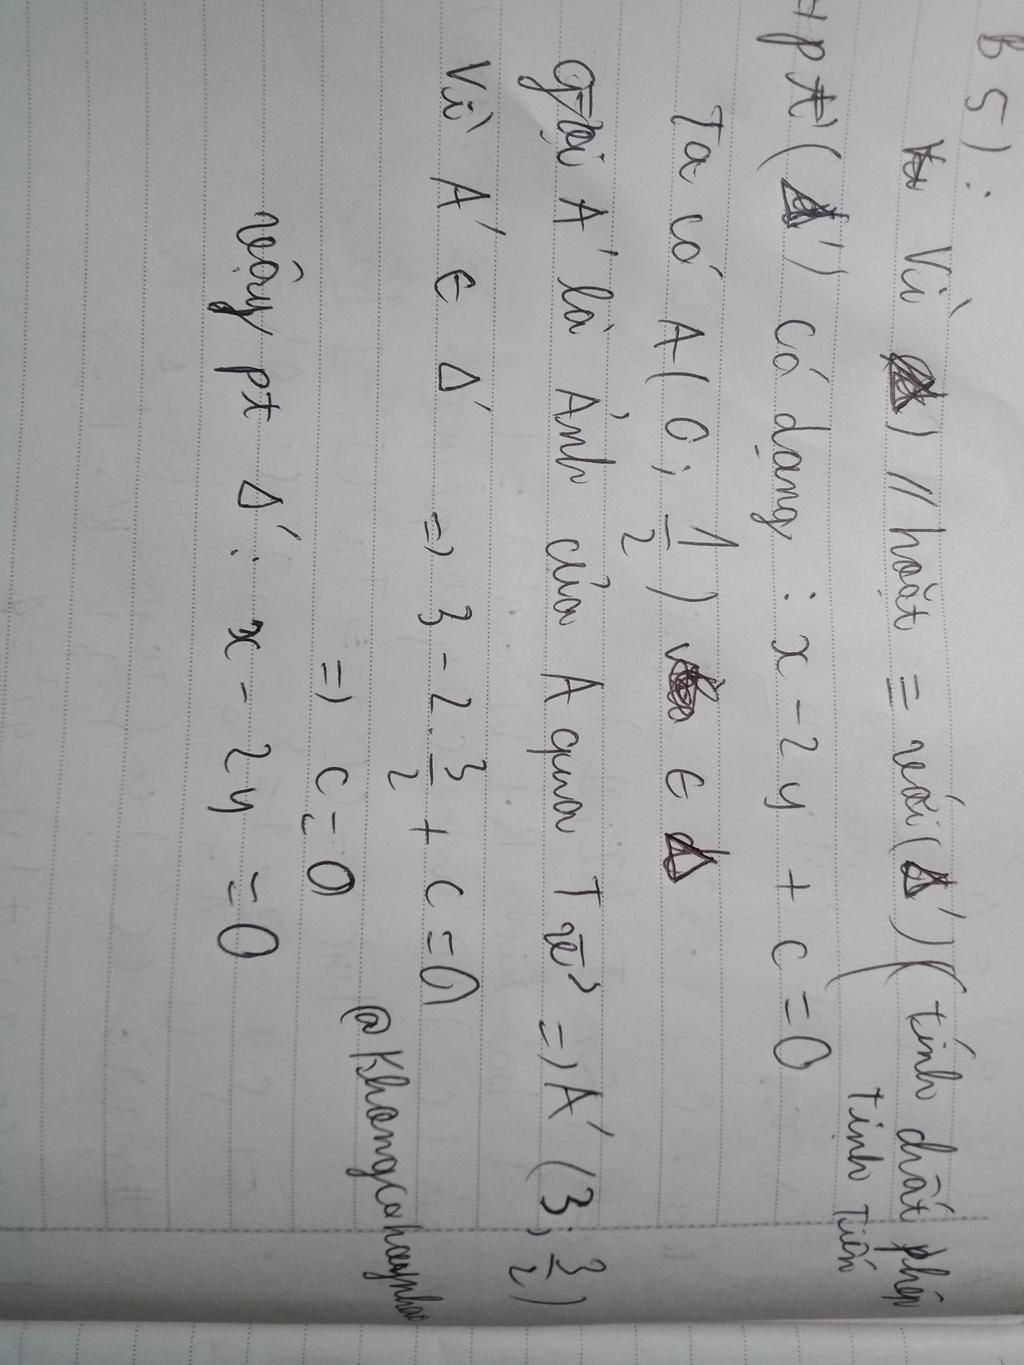 B5):
Vì (Δ) // hoặt = với (Δ') (tính chất phép
tịnh tiến
pt (Δ') có dạng : x - 2y + c = 0
Ta có A(0; 1/2) ∈ Δ
Gọi A' là Ảnh của A qua T v⃗ => A' (3; 3/2)
Vì A' ∈ Δ' => 3 - 2.3/2 + c = 0
=> c = 0
vậy pt Δ' : x - 2y = 0